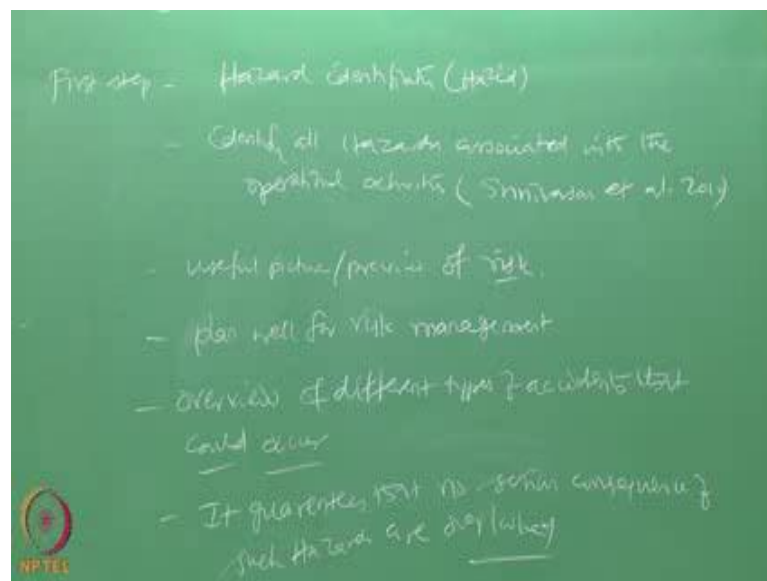 First step - Hazard identification (Hazid)
- Identify all Hazards associated with the
operational activities (Srinivasan et al. 2019)
- useful picture/preview of risk.
- plan well for risk management
- overview of different types of accidents that
could occur
- It guarantees that no serious consequence of
such Hazards are overlooked
NPTEL